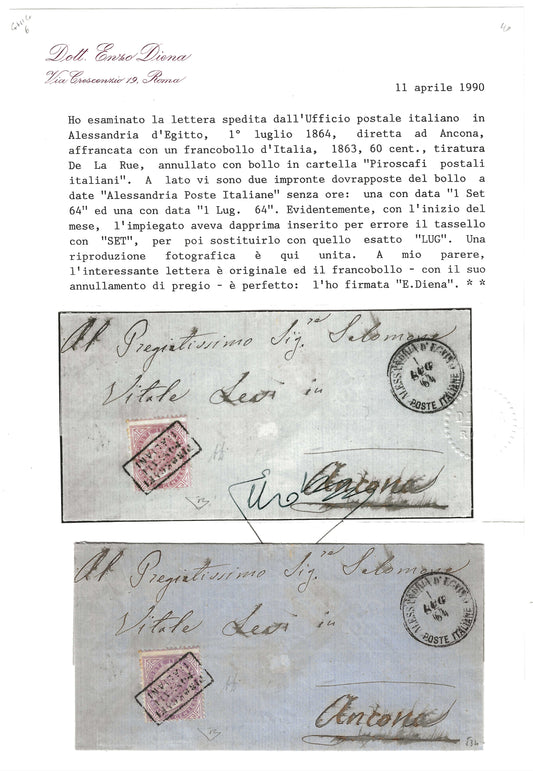 Dott. Enzo Diena
Via Crescenzio 19, Roma
11 aprile 1990
Ho esaminato la lettera spedita dall'Ufficio postale italiano in
Alessandria d'Egitto, 1° luglio 1864, diretta ad Ancona,
affrancata con un francobollo d'Italia, 1863, 60 cent., tiratura
De La Rue, annullato con bollo in cartella "Piroscafi postali
italiani". A lato vi sono due impronte dovrapposte del bollo a
date "Alessandria Poste Italiane" senza ore: una con data "1 Set
64" ed una con data "1 Lug. 64". Evidentemente, con l'inizio del
mese, l'impiegato aveva dapprima inserito per errore il tassello
con "SET", per poi sostituirlo con quello esatto "LUG". Una
riproduzione fotografica è qui unita. A mio parere,
l'interessante lettera è originale ed il francobollo - con il suo
annullamento di pregio - è perfetto: l'ho firmata "E.Diena". * *
Al Pregiatissimo Sig.ra Salomone
Vitale Levi in
Ancona
ALESSANDRIA D'EGITTO
1
LUG
64
POSTE ITALIANE
PIROSCAFI
POSTALI
ITALIANI
Al Pregiatissimo Sig.ra Salomone
Vitale Levi in
Ancona
ALESSANDRIA D'EGITTO
1
LUG
64
POSTE ITALIANE
PIROSCAFI
POSTALI
ITALIANI